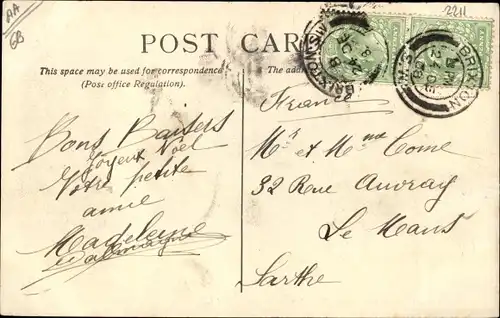 AA
68
2211
POST CAR
This space may be used for correspondence
(Post office Regulation).
The add
BRIXTON S.W.
BRIXTON
S.W.
France
Bons Baisers
Joyeux Noël
Votre petite
amie
Madeleine
Mr et Mme Come
32 Rue Auvray
Le Mans
Sarthe